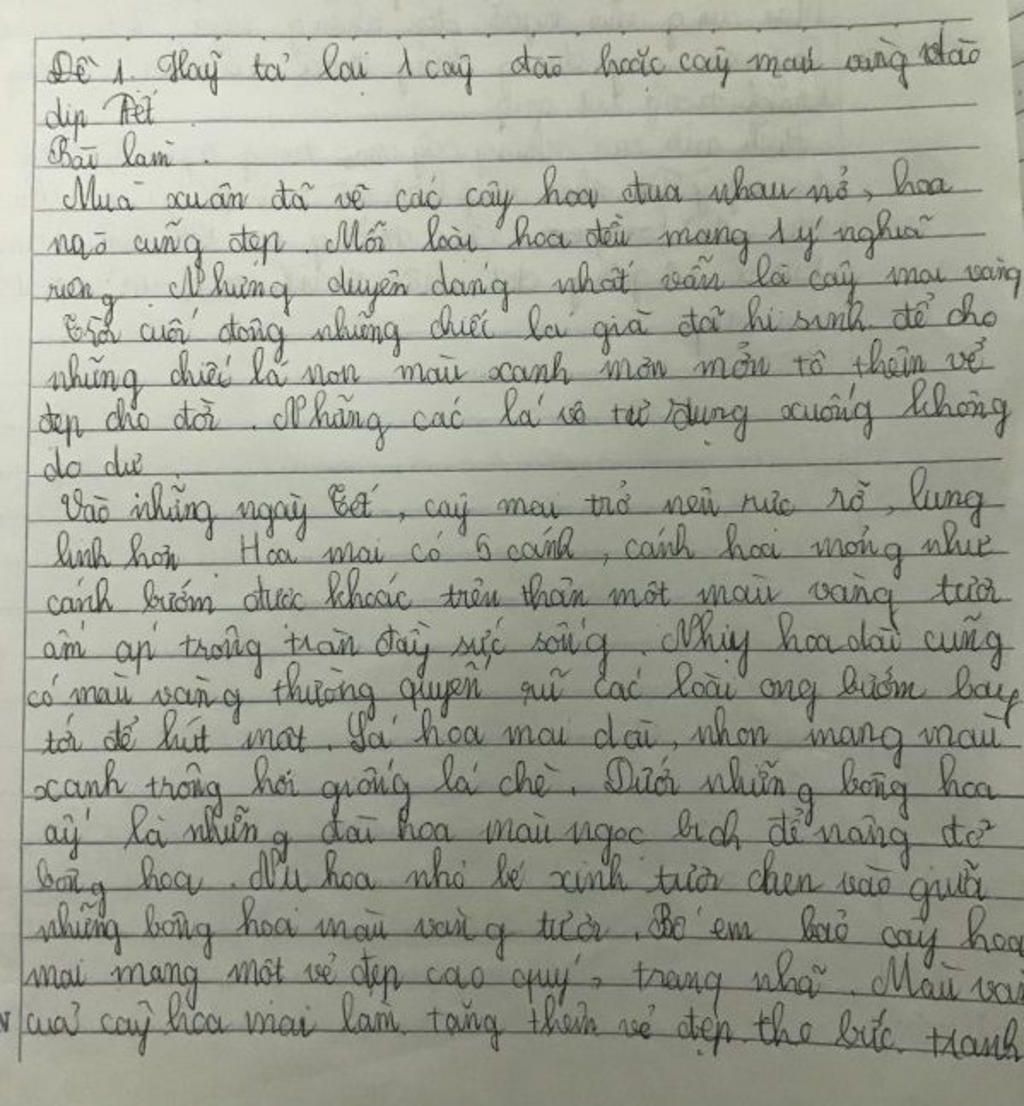 Đề 1. Hãy tả lại 1 cây đào hoặc cây mai vàng vào
dịp Tết
Bài làm.
Mùa xuân đã về các cây hoa đua nhau nở, hoa
nào cũng đẹp. Mỗi loài hoa đều mang 1 ý nghĩa
riêng. Nhưng duyên dáng nhất vẫn là cây mai vàng
Trời cuối đông những chiếc lá già đã hi sinh để cho
những chiếc lá non màu xanh mơn mởn tô thêm vẻ
đẹp cho đời. Nhưng các lá vô tư rụng xuống không
do dự
Vào những ngày Tết, cây mai trở nên rực rỡ, lung
linh hơn. Hoa mai có 5 cánh, cánh hoa mỏng như
cánh bướm được khoác trên thân một màu vàng tươi
ấm áp trông tràn đầy sức sống. Nhụy hoa dài cũng
có màu vàng thường quyến rũ các loài ong bướm bay
tới để hút mật. Lá hoa mai dài, nhọn mang màu
xanh trông hơi giống lá chè. Dưới những bông hoa
ấy là những đài hoa màu ngọc bích để nâng đỡ
bông hoa. Nụ hoa nhỏ bé xinh tươi chen vào giữa
những bông hoa màu vàng tươi. Bố em bảo cây hoa
mai mang một vẻ đẹp cao quý, trang nhã. Màu và
của cây hoa mai làm tăng thêm vẻ đẹp cho bức tranh